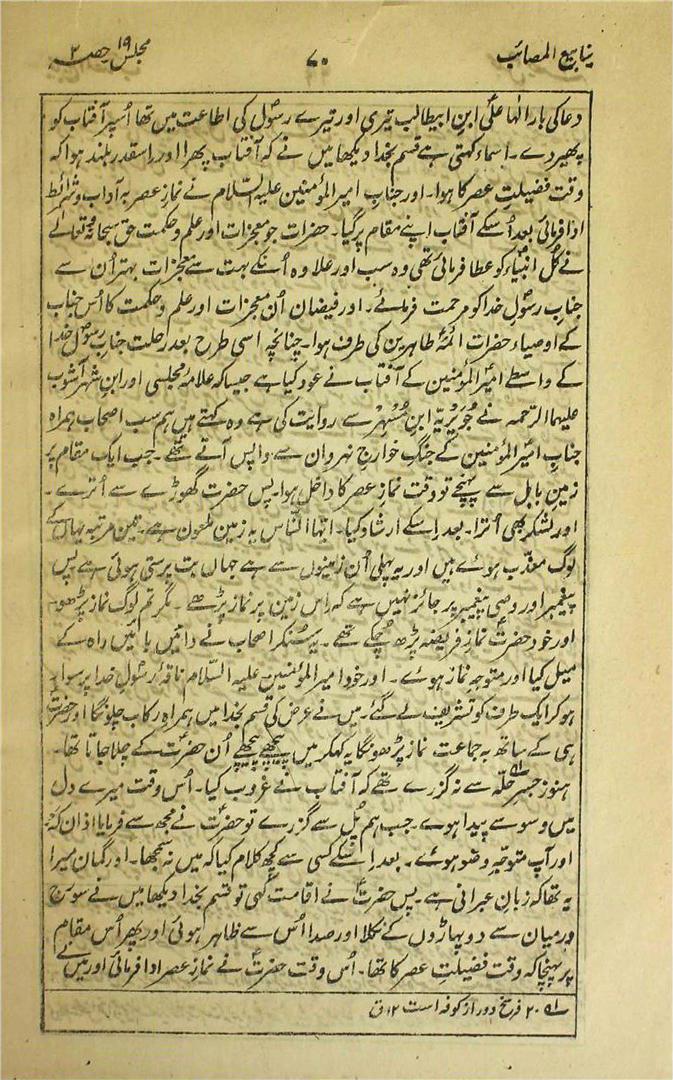 ینابیع المصائب ۷۰ مجلس ۱۹ حصہ ۲
دعا کی بار الٰہا علیؑ ابن ابیطالب تیری اور تیرے رسولؐ کی اطاعت میں تھا اُسپر آفتاب کو
پھیر دے۔ اسماء کہتی ہے قسم بخدا دیکھا میں نے کہ آفتاب پھرا اور اسقدر بلند ہوا کہ
وقت فضیلت عصر کا ہوا۔ اور جناب امیر المؤمنین علیہ السّلام نے نماز عصر بہ آداب و شرائط
ادا فرمائی بعد اُسکے آفتاب اپنے مقام پر گیا۔ حضرات جو معجزات اور علم و حکمت حق سبحانہٗ و تعالےٰ
نے کُل انبیاؑء کو عطا فرمائی تھی وہ سب اور علاوہ اُنکے بہت سے معجزات بہتر اُن سے
جناب رسولِ خدا کو مرحمت فرمائے۔ اور فیضان اُن معجزات اور علم و حکمت کا اُس جناب
کے اوصیاء حضرات ائمۂ طاہرین کی طرف ہوا۔ چنانچہ اسی طرح بعد رحلت جناب رسولؐ خدا
کے واسطے امیرؑ المؤمنین کے آفتاب نے عود کیا ہے جیسا کہ علامۂ مجلسی اور ابن شہر آشوب
علیہما الرحمہ نے جُوَیْرِیَۃ ابنِ مُسْہِرْ سے روایت کی ہے وہ کہتے ہیں ہم سب اصحاب ہمراہ
جناب امیرؑ المؤمنین کے جنگ خوارج نہروان سے واپس آتے تھے۔ جب ایک مقام پر
زمین بابل سے پہنچے تو وقت نماز عصر کا داخل ہوا۔ پس حضرت گھوڑے سے اُترے۔
اور لشکر بھی اُترا۔ بعد اِسکے ارشاد کیا۔ ایّہا النّاس یہ زمین ملعون ہے۔ تین مرتبہ یہاں کے
لوگ معذّب ہوئے ہیں اور یہ پہلی اُن زمینوں سے ہے جہاں بت پرستی ہوئی ہے پس
پیغمبر اور وصی پیغمبر پر جائز نہیں ہے کہ اس زمین پر نماز پڑھے۔ مگر تم لوگ نماز پڑھو۔
اور خود حضرتؑ نماز فریضہ پڑھ چُکے تھے۔ یہ سنکر اصحاب نے دائیں بائیں راہ کے
میل کیا اور متوجہ نماز ہوئے۔ اور خود امیر المؤمنین علیہ السّلام ناقۂ رسولِ خدا پر سوار
ہو کر ایک طرف کو تشریف لے گئے۔ میں نے عرض کی قسم بخدا میں ہمراہ رکاب چلونگا اور حضرت
ہی کے ساتھ بہ جماعت نماز پڑھونگا یہ کہکر میں پیچھے پیچھے اُن حضرتؑ کے چلا جاتا تھا۔
ہنوز جسر حلّہ سے نہ گزرے تھے کہ آفتاب نے غروب کیا۔ اُس وقت میرے دل
میں وسوسے پیدا ہوے۔ جب ہم پُل سے گزرے تو حضرتؑ نے مجھ سے فرمایا اذان کہہ
اور آپ متوجہ وضو ہوئے۔ بعد اِسکے کسی سے کچھ کلام کیا کہ میں نہ سمجھا۔ اور گمان میرا
یہ تھا کہ زبان عبرانی ہے۔ پس حضرتؑ نے اقامت کہی تو قسم بخدا دیکھا میں نے سورج
درمیان سے دو پہاڑوں کے نکلا اور صدا اُس سے ظاہر ہوئی اور پھر اُس مقام
پر پہنچا کہ وقت فضیلت عصر کا تھا۔ اُس وقت حضرتؑ نے نماز عصر ادا فرمائی اور میں نے
۲۰ فرسخ دور از کوفہ است ۱۲ ق